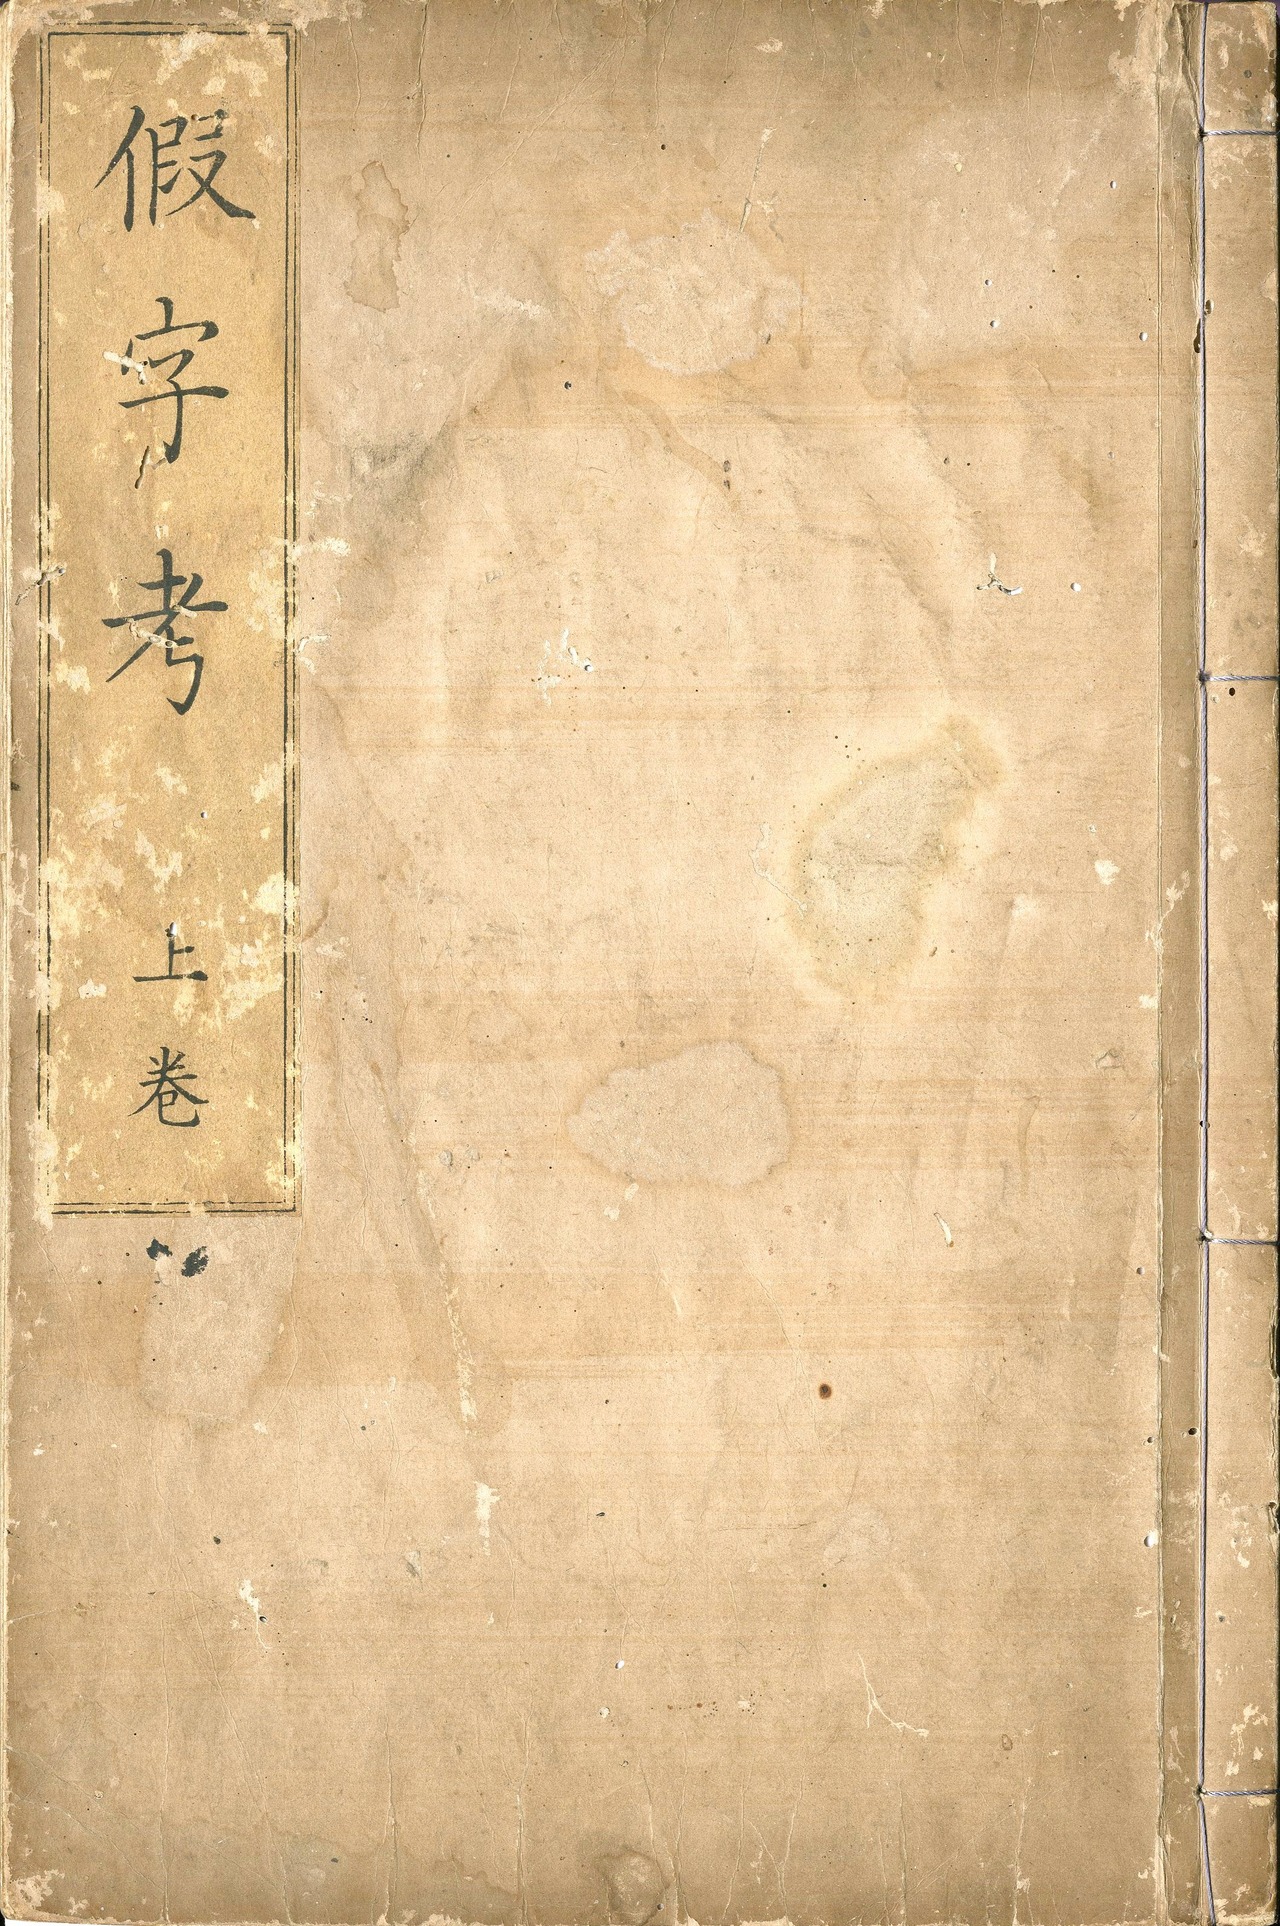 假字考 上巻